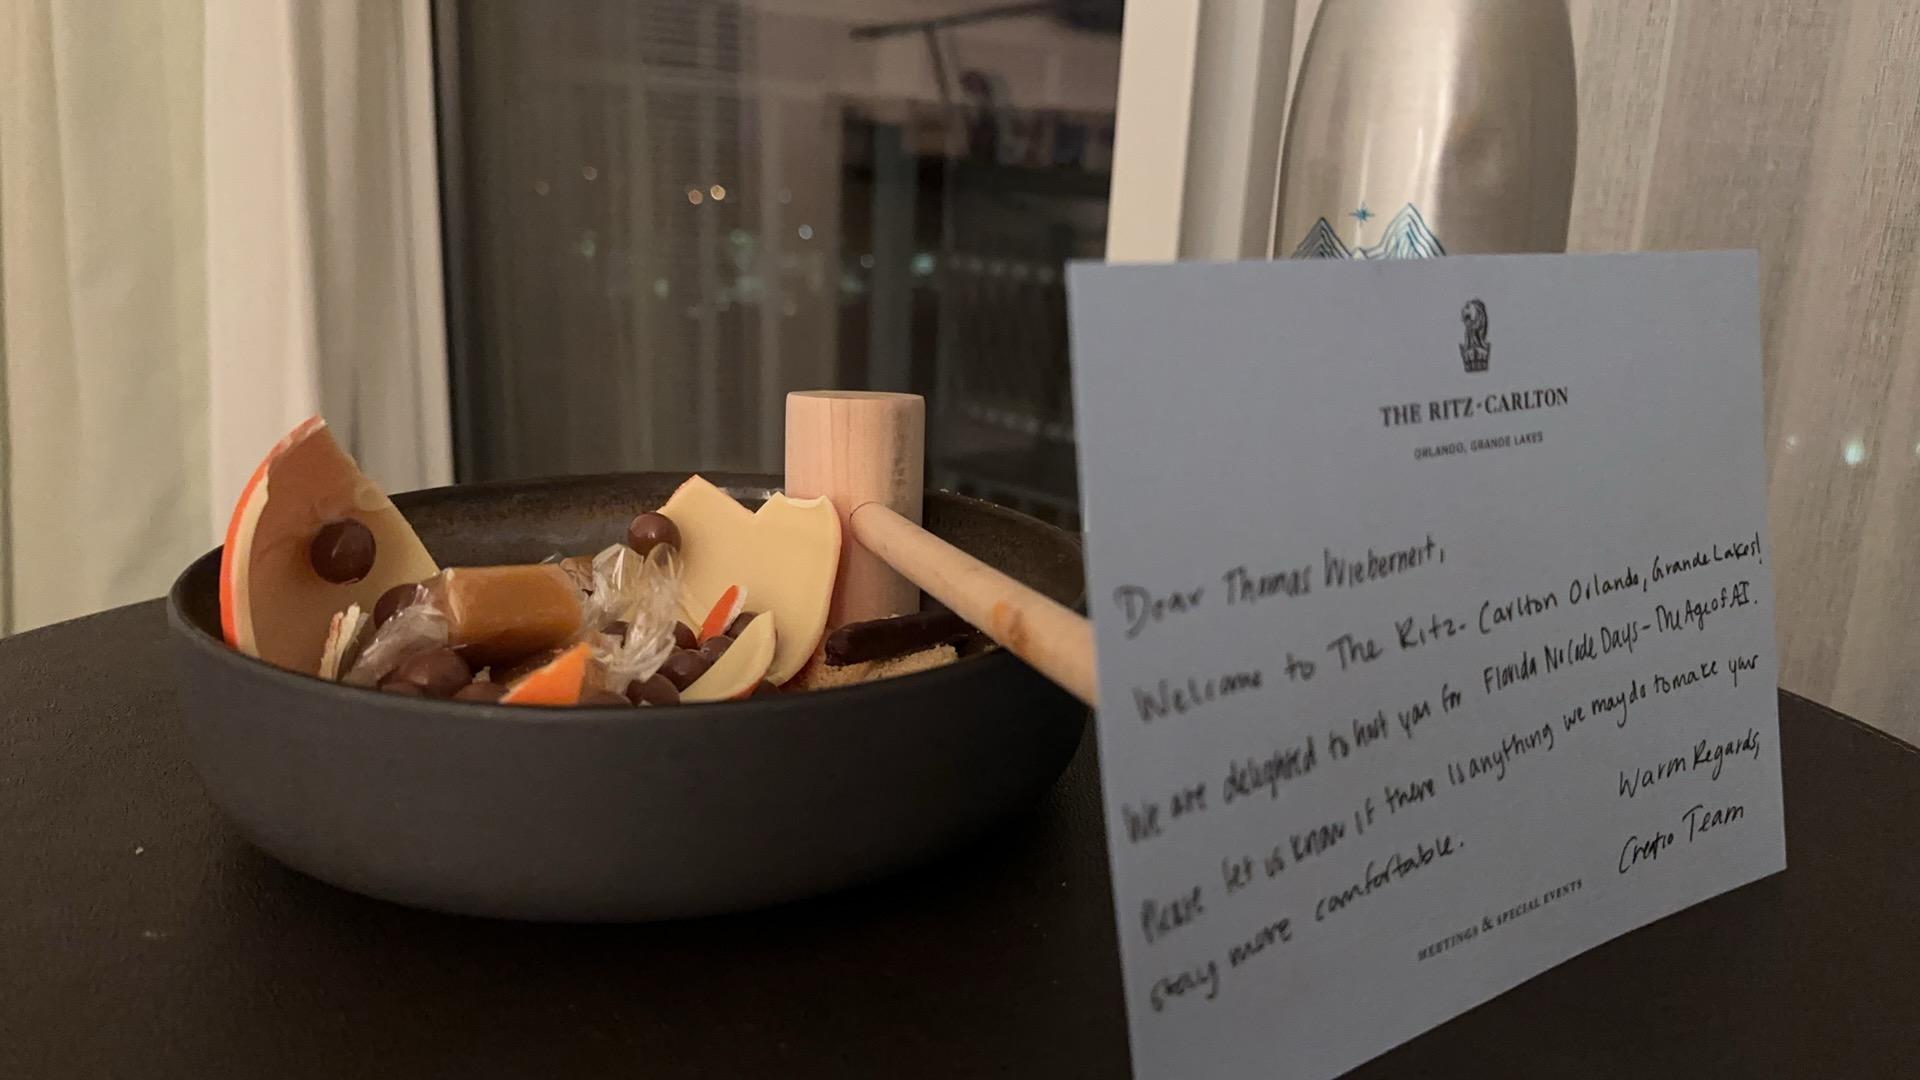 THE RITZ-CARLTON
ORLANDO, GRANDE LAKES
Dear Thomas Wiebernert,
Welcome to The Ritz-Carlton Orlando, Grande Lakes!
We are delighted to host you for Florida NoCode Days - The Age of AI.
Please let us know if there is anything we may do to make your
stay more comfortable.
Warm Regards,
Creatio Team
MEETINGS & SPECIAL EVENTS